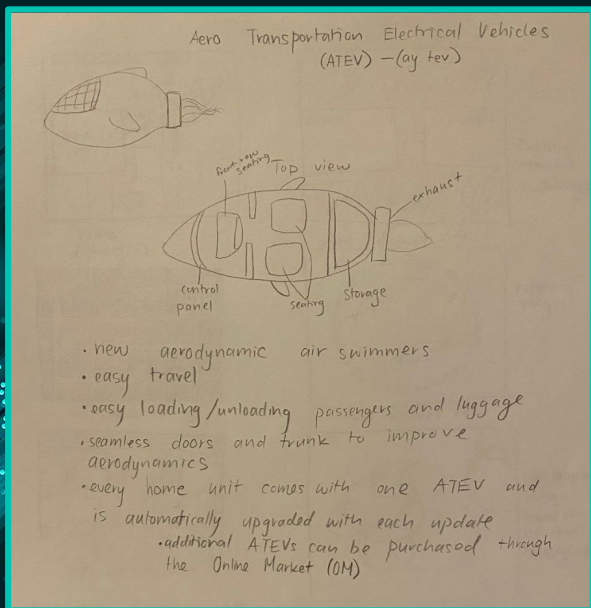 Aero Transportation Electrical Vehicles
(ATEV) - (ay tev)
front row
seating
Top view
exhaust
control
panel
seating
storage
• new aerodynamic air swimmers
• easy travel
• easy loading/unloading passengers and luggage
• seamless doors and trunk to improve
aerodynamics
• every home unit comes with one ATEV and
is automatically upgraded with each update
• additional ATEVs can be purchased through
the Online Market (OM)